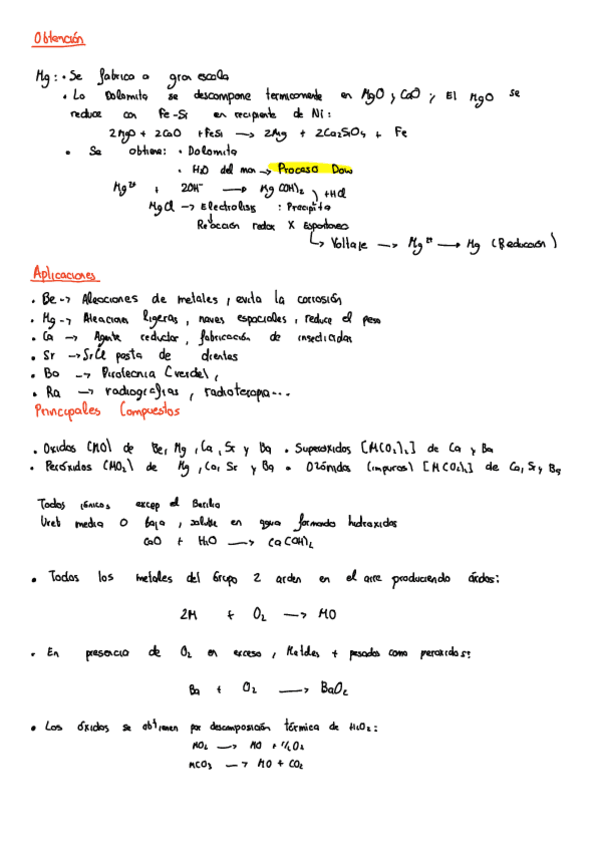 Obtención
Mg: • Se fabrica a gran escala
• La Dolomita se descompone termicamente en MgO y CaO ; El MgO se
reduce con Fe-Si en recipiente de Ni:
2MgO + 2CaO + FeSi → 2Mg + 2Ca2SiO4 + Fe
• Se obtiene: • Dolomita
• H2O del mar → Proceso Dow
Mg2+ + 2OH- → Mg(OH)2 ) +HCl
MgCl → Electrolisis : Precipita
Reacción redox X Espontaneo
↳ Voltaje → Mg2+ → Mg (Reducción)
Aplicaciones
• Be → Aleaciones de metales, evita la corrosión
• Mg → Aleaciones ligeras, naves espaciales, reduce el peso
• Ca → Agente reductor, fabricación de insecticidas
• Sr → SrCl pasta de dientes
• Ba → Pirotecnia (verde),
• Ra → radiografias, radioterapia...
Principales Compuestos
• Oxidos (MO) de Be, Mg, Ca, Sr y Ba • Superoxidos [M(O2)2] de Ca y Ba
• Peróxidos (MO2) de Mg, Ca, Sr y Ba • Ozónidos (impuros) [M(O3)2] de Ca, Sr y Ba
Todos iónicos excep el Berilio
Uret media o baja, soluble en agua formando hidroxidos
CaO + H2O → Ca(OH)2
• Todos los metales del Grupo 2 arden en el aire produciendo óxidos:
2M + O2 → MO
• En presencia de O2 en exceso, Metales + pesados como peroxidos:
Ba + O2 → BaO2
• Los óxidos se obtienen por descomposición térmica de :
MO2 → MO + 1/2O2
MCO3 → MO + CO2